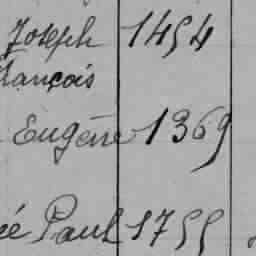 Joseph 1454
François
Eugène 1369
ée Paul 1755